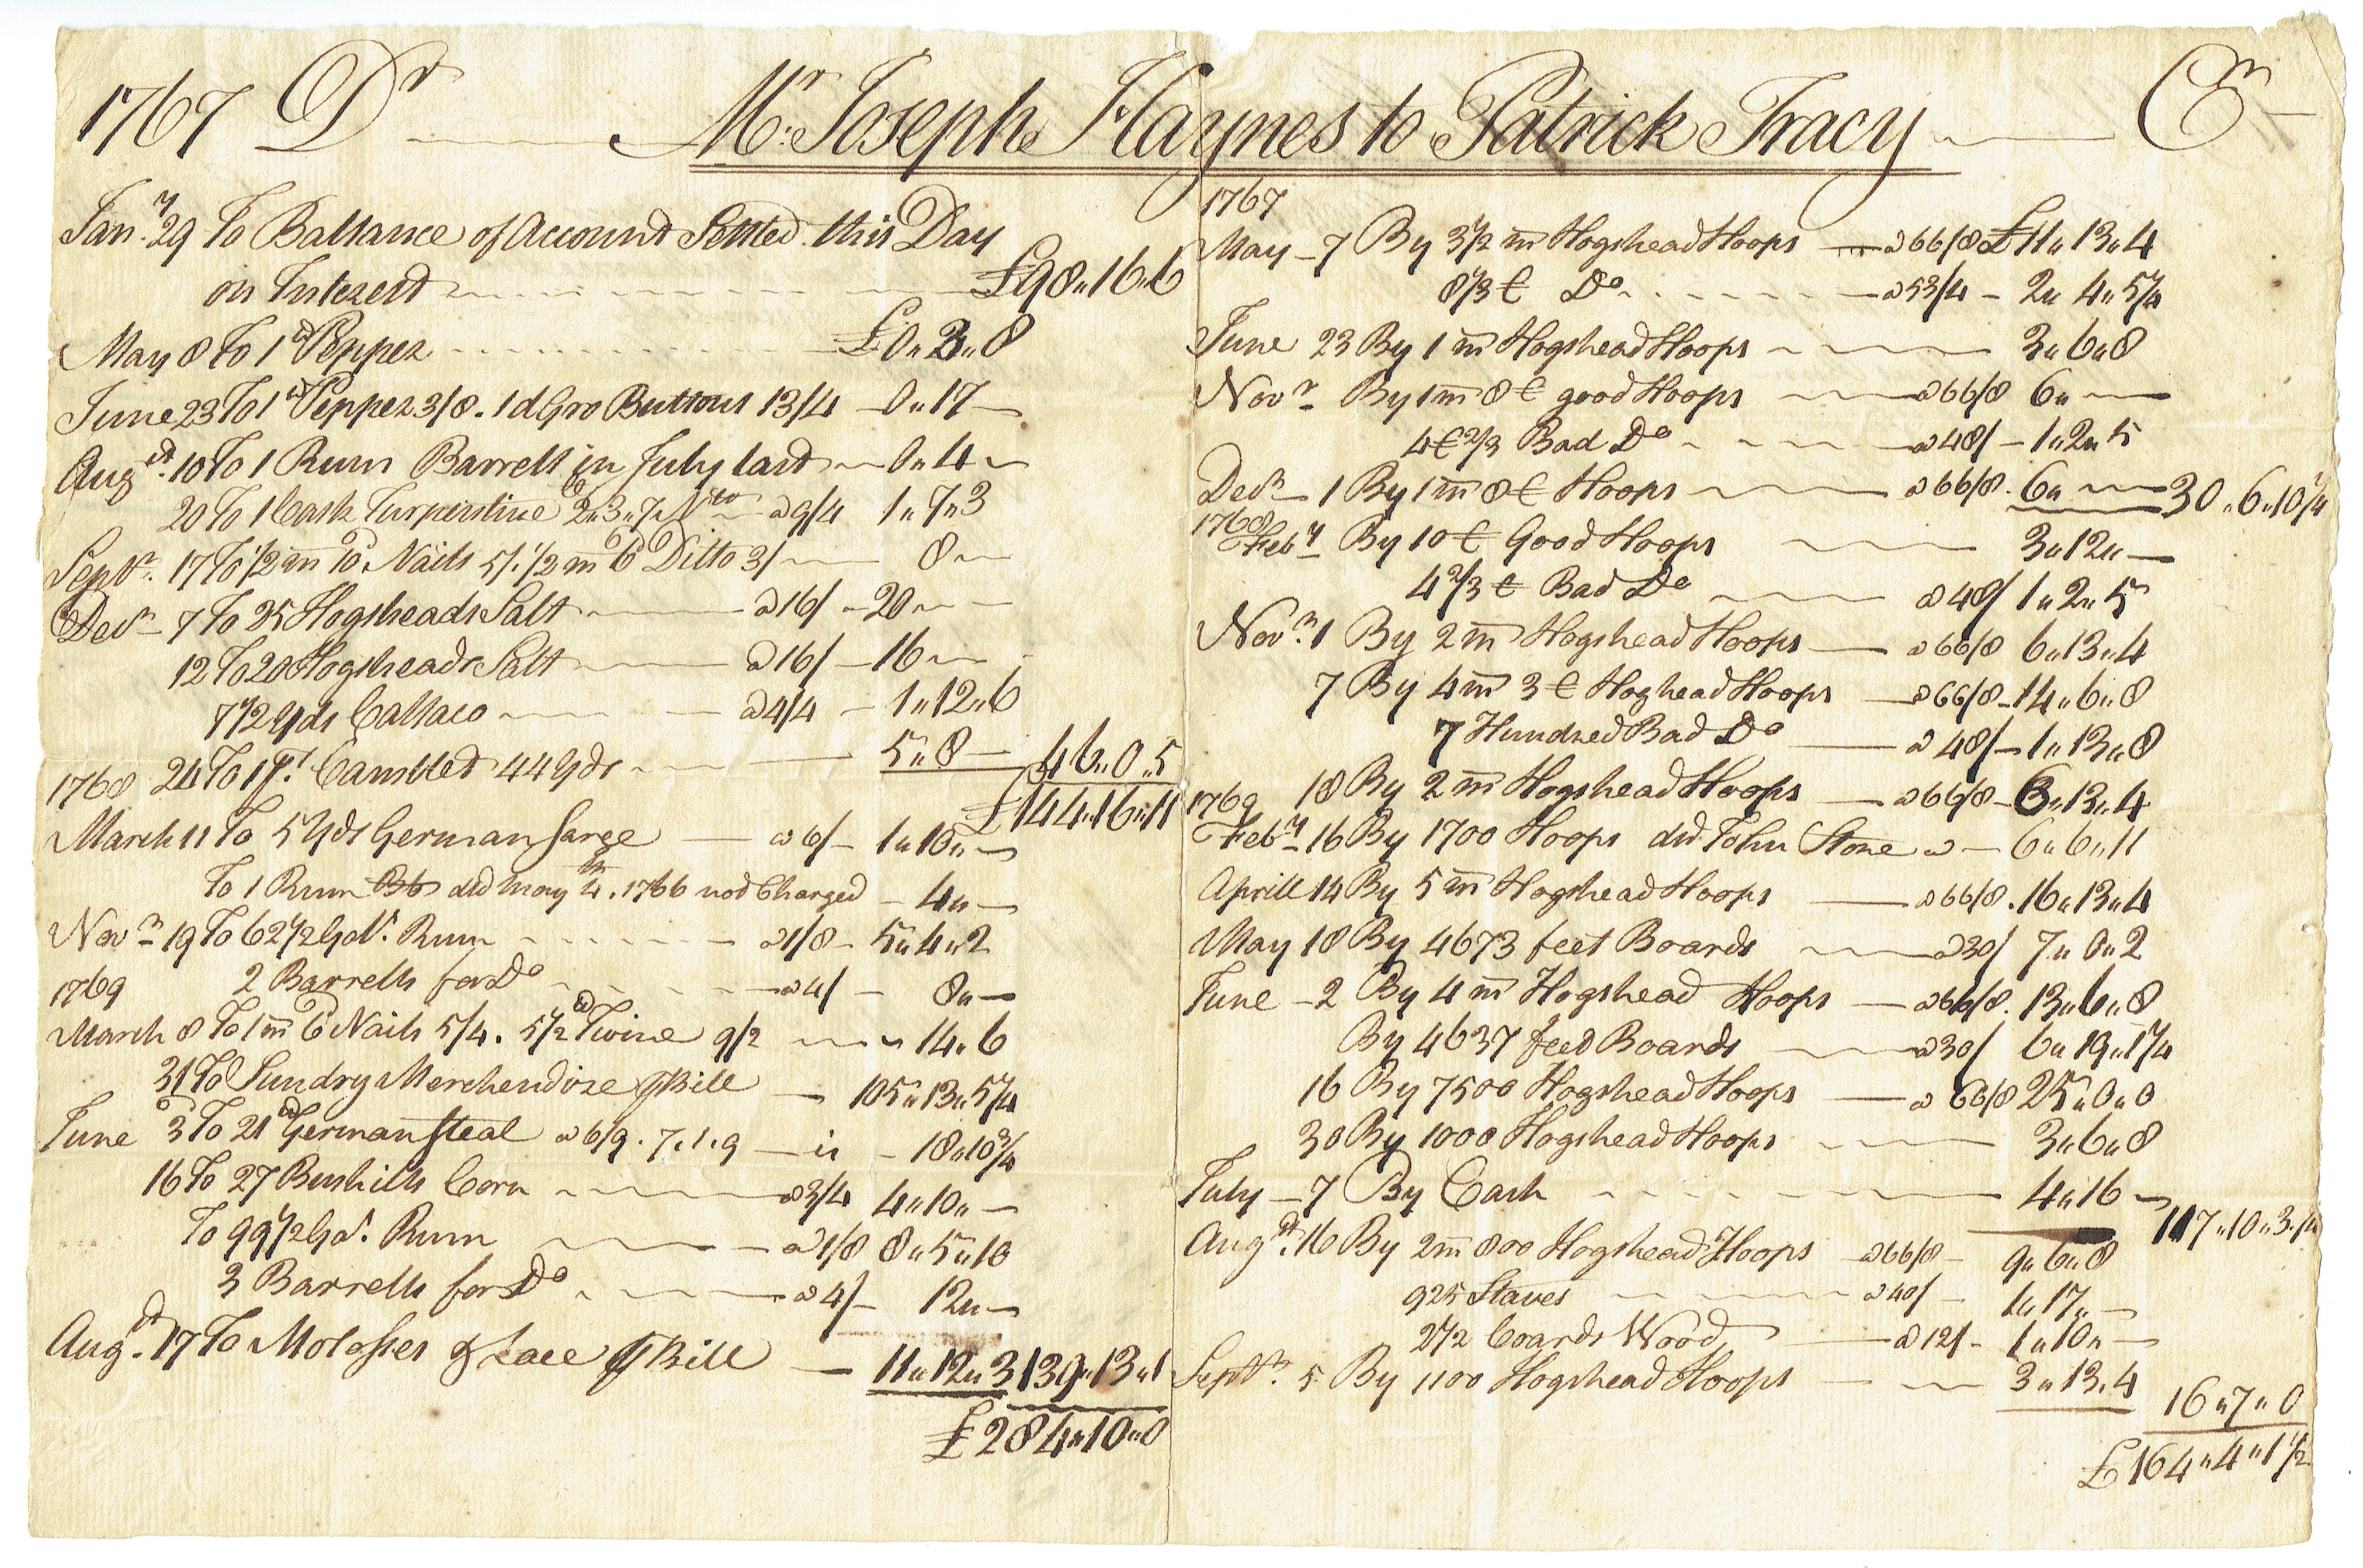 1767 Dr Mr. Joseph Haynes to Patrick Tracy Cr
Jany. 29 To Ballance of Account Settled this Day
on Interest £98"16"6
May 8 To 1 lb Pepper £0"3"8
June 23 To 1 lb Pepper 3/8. 1 d Gro Buttons 13/4 0"17
Augst. 10 To 1 Rum Barrell in July last 0"4
20 To 1 Cask Turpentine 2"3"7 @ 9/4 1"7"3
Septr. 17 To 1/2 m 10d Nails 5/. 1/2 m 6d Ditto 3/ 8
Decr 7 To 25 Hogsheads Salt @ 16/ 20
12 To 20 Hogsheads Salt @ 16/ 16
7 1/2 yds Callaco @ 4/4 1"12"6
1768 24 To 1 ps. Cambled 44 yds 5"8 46"0"5
£144"16"11
March 11 To 5 yds German Sarge @ 6/ 1"10"
To 1 Rum Bb dld may 4th. 1766 not Charged 4"
Novr 19 To 62 1/2 Gals. Rum @ 1/8 5"4"2
1769 2 Barrells for Do @ 4/ 8"
March 8 To 1 m 6d Nails 5/4. 5 1/2 lb Twine 9/2 14"6
31 To Sundry Merchendize p Bill 105"13"5 1/4
June 3 To 21 lb German Steal @ 6/9. 7.1.9 is 18"10 3/4
16 To 27 Bushills Corn @ 3/4 4"10"
To 99 1/2 Gal. Rum @ 1/8 8"5"10
3 Barrells for Do @ 4/ 12"
Augst. 17 To Molosses & Lace p Bill 11"12"3 139"13"1
£284"10"0
1767
May 7 By 3 1/2 m Hogshead Hoops @ 66/8 £11"13"4
8 1/3 C Do @ 53/4 2"4"5 1/4
June 23 By 1 m Hogshead Hoops 3"6"8
Novr By 1 m 8 C good Hoops @ 66/8 6"
4 C 2/3 Bad Do @ 48/ 1"2"5
Decr 1 By 1 m 8 C Hoops @ 66/8. 6" 30"6"10 1/4
1768
Feby By 10 C Good Hoops 3"12"
4 2/3 C Bad Do @ 48/ 1"2"5
Novr. 1 By 2 m Hogshead Hoops @ 66/8 6"13"4
7 By 4 m 3 C Hoghead Hoops @ 66/8 14"6"8
7 Hundred Bad Do @ 48/ 1"13"8
1769 18 By 2 m Hogshead Hoops @ 66/8 6"13"4
Feby 16 By 1700 Hoops dld John Stone @ 6"6"11
Aprill 14 By 5 m Hogshead Hoops @ 66/8. 16"13"4
May 18 By 4673 feet Boards @ 30/ 7"0"2
June 2 By 4 m Hogshead Hoops @ 66/8. 13"6"8
By 4637 feet Boards @ 30/ 6"19"1 1/4
16 By 7500 Hogshead Hoops @ 66/8 25"0"0
30 By 1000 Hogshead Hoops 3"6"8
July 7 By Cash 4"16
117"10"3 1/4
Augst. 16 By 2 m 800 Hogshead Hoops @ 66/8 9"6"8
925 Staves @ 40/ 1"17"
2 1/2 Coards Wood @ 12/ 1"10"
Septr. 5 By 1100 Hogshead Hoops 3"13.4
16"7"0
£164"4"1 1/2